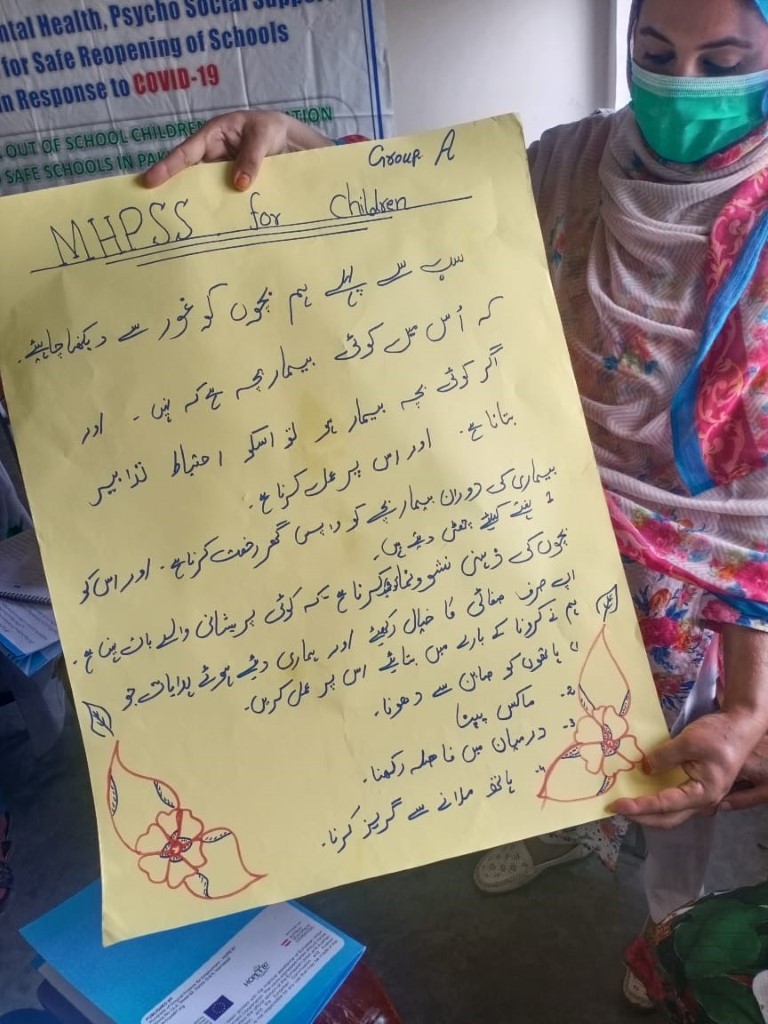 ntal Health, Psycho Social Support
for Safe Reopening of Schools
in Response to COVID-19
OUT OF SCHOOL CHILDREN
SAFE SCHOOLS IN PAK
Group A
MHPSS for Children
سب سے پہلے ہم بچوں کو غور سے دیکھنا چاہیئے۔
کہ اُس میں کوئی بیمار بچہ ہے کہ نہیں ۔ اور
اگر کوئی بچہ بیمار ہو تو اسکو احتیاط تدابیر
بتانا ہے۔ اور اس پر عمل کرنا ہے۔
بیماری کی دوران بیمار بچے کو واپس گھر رخصت کرنا ہے۔ اور اس کو
2 ہفتے کیلئے چھٹی دیتے ہیں۔
بچوں کی ذہنی نشوونما کرنا ہے۔ کہ کوئی پریشانی والے بات نہیں ہے۔
اپ صرف صفائی کا خیال رکھیئے اور ہماری دیئے ہوئے ہدایات جو
ہم نے کرونا کے بارے میں بتائیے اس پر عمل کریں۔
1) ہاتھوں کو صابن سے دھونا۔
2۔ ماکس پہننا
3۔ درمیان میں فاصلہ رکھنا۔
4۔ ہاتھ ملانے سے گریز کرنا۔
HOPE'87